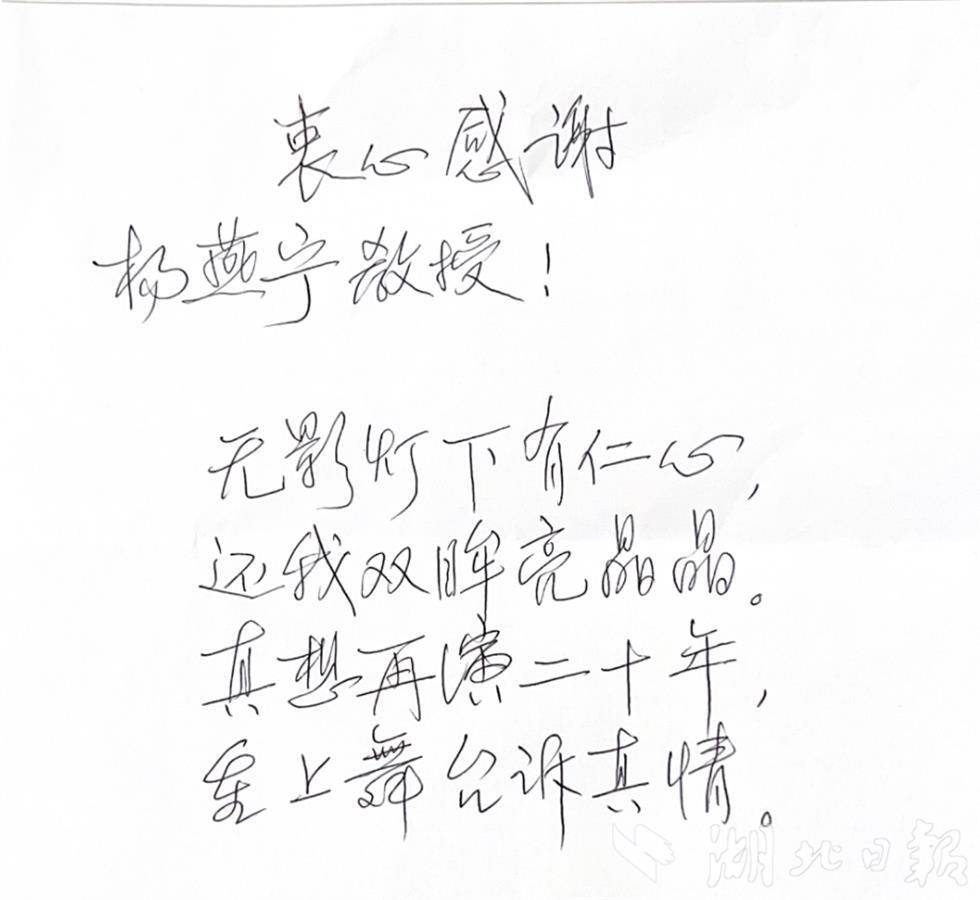 衷心感谢
杨燕宁教授！
无影灯下有仁心，
还我双眸亮晶晶。
真想再演二十年，
重上舞台诉真情。
湖北日報